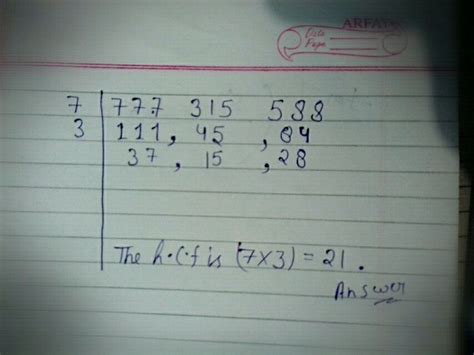 ARFA
Date
Page
7 | 777 315 588
3 | 111, 45, 84
37, 15, 28
The h.c.f is (7x3) = 21.
Answer